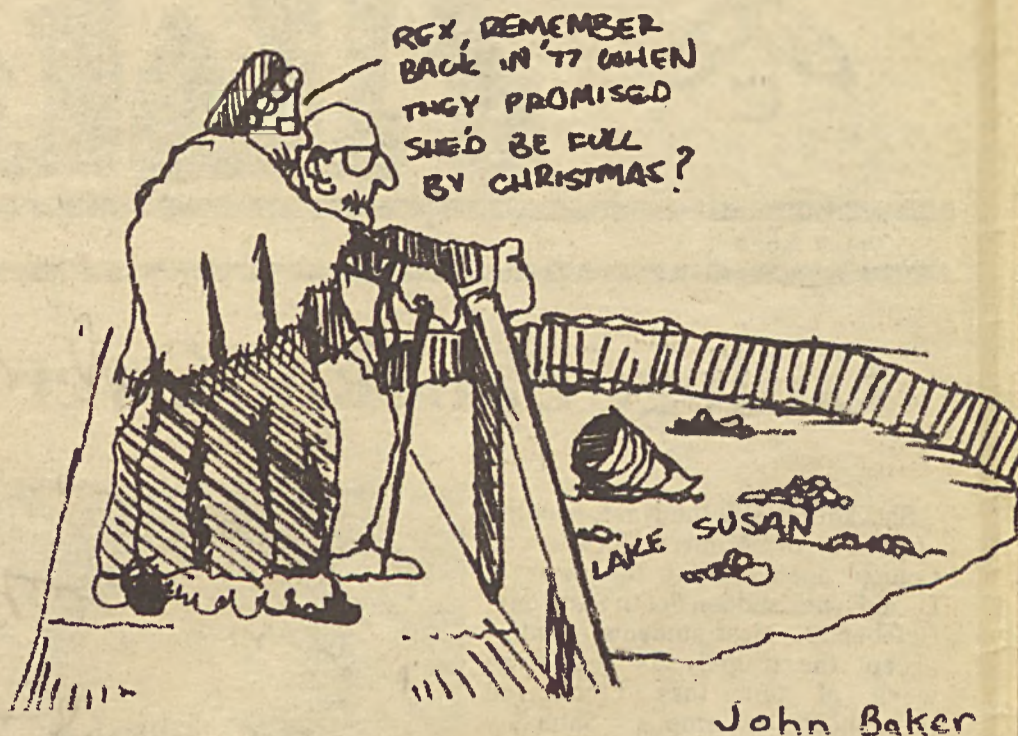 REX, REMEMBER
BACK IN '77 WHEN
THEY PROMISED
SHE'D BE FULL
BY CHRISTMAS?
LAKE SUSAN
John Baker